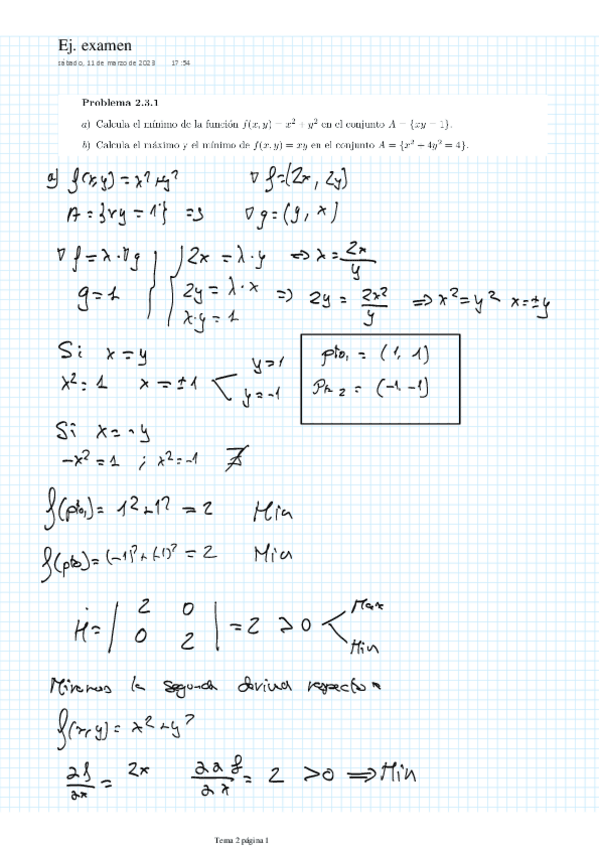 Ej. examen
sábado, 11 de marzo de 2023 17:54
Problema 2.3.1
a) Calcula el mínimo de la función f(x, y) = x² + y² en el conjunto A = {xy = 1}.
b) Calcula el máximo y el mínimo de f(x, y) = xy en el conjunto A = {x² + 4y² = 4}.
a) f(x,y) = x²+y² ∇f=(2x, 2y)
A = {xy = 1} => ∇g = (y, x)
∇f = λ·∇g 2x = λ·y => λ = 2x/y
g = 1 2y = λ·x => 2y = 2x²/y => x² = y² x = ±y
x·y = 1
Si x = y
x² = 1 x = ±1 y = 1 y = -1
pto₁ = (1, 1)
Pto 2 = (-1, -1)
Si x = -y
-x² = 1 ; x² = -1 ∄
f(pto₁) = 1²+1² = 2 Min
f(pto) = (-1)²+(-1)² = 2 Min
H = | 2 0 | = 2 > 0 Max
| 0 2 | Min
Miremos la segunda deriva respecto x
f(x,y) = x²+y²
∂f/∂x = 2x ∂∂f/∂x = 2 > 0 => Min
Tema 2 página 1